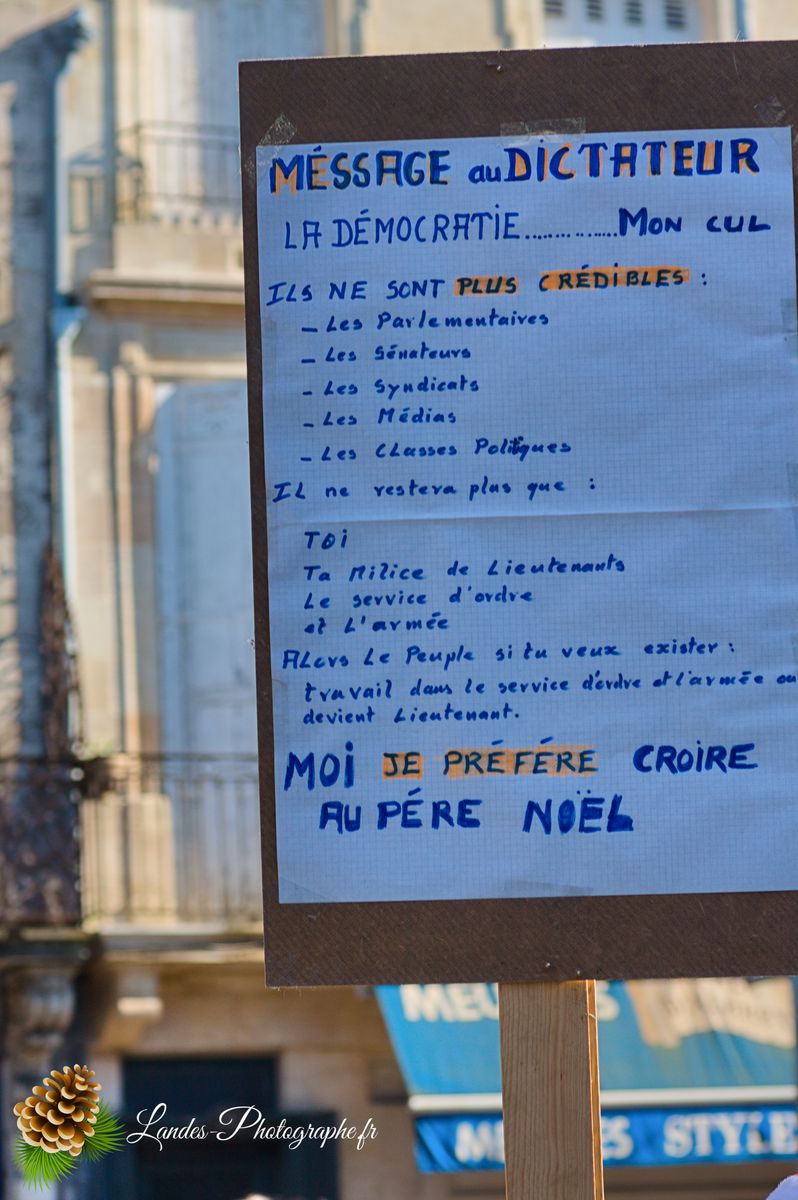 MÉSSAGE au DICTATEUR
LA DÉMOCRATIE............... MON CUL
ILS NE SONT PLUS CRÉDIBLES :
- Les Parlementaires
- Les Sénateurs
- Les Syndicats
- Les Médias
- Les Classes Politiques
IL ne restera plus que :
TOI
Ta Milice de Lieutenants
Le service d'ordre
et L'armée
ALors Le Peuple si tu veux exister :
travail dans le service d'ordre et l'armée ou
devient Lieutenant.
MOI JE PRÉFÉRE CROIRE
AU PÉRE NOËL
STYLE
Landes-Photographe.fr